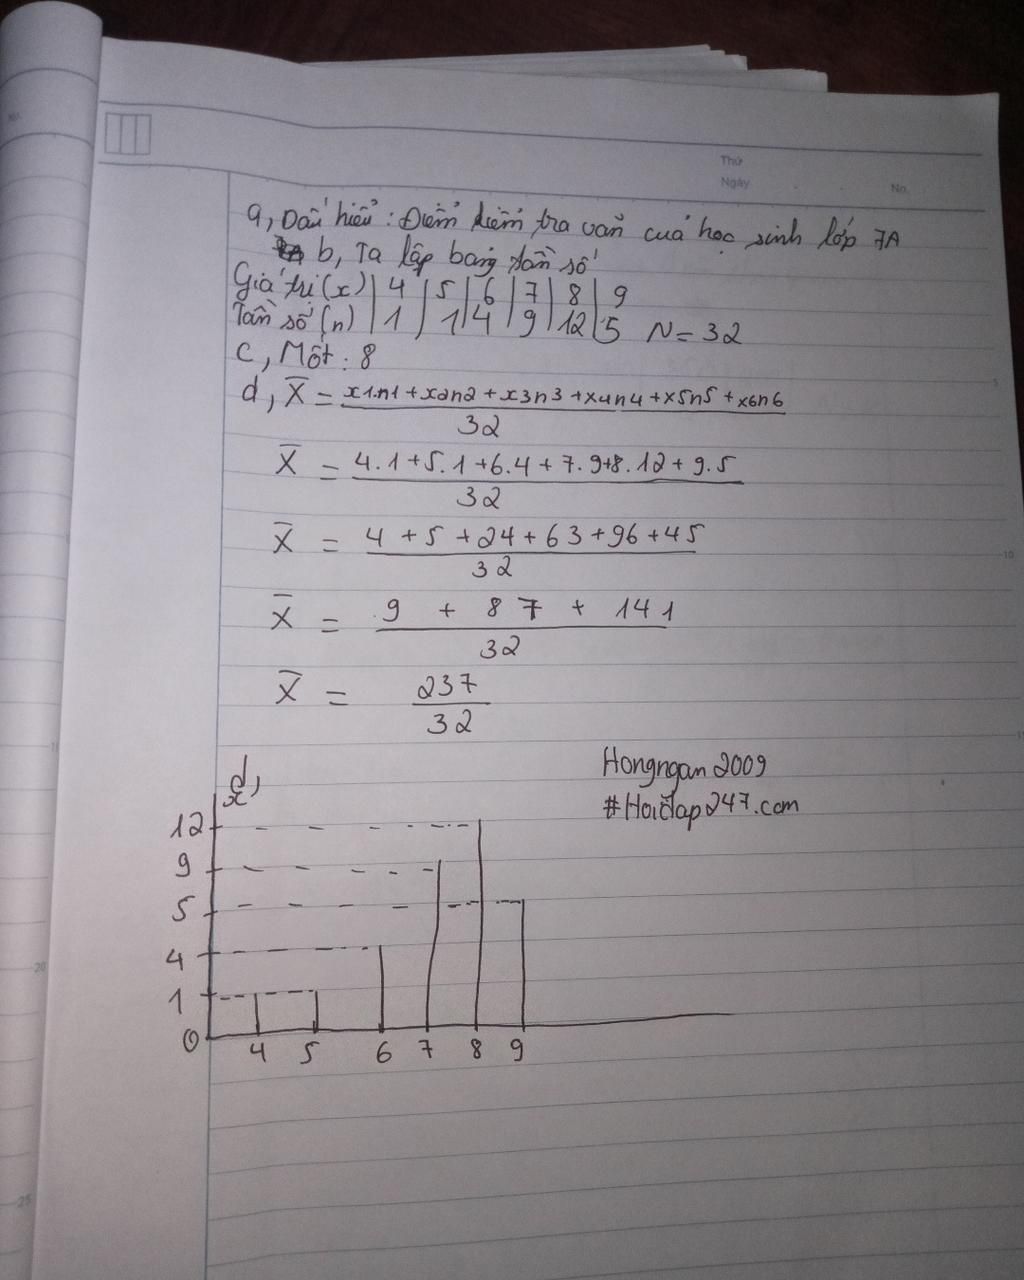 Thứ
Ngày No.
a, Dấu hiểu : Điểm kiểm tra văn của học sinh lớp 7A
b, Ta lập bảng tần số
Giá trị (x) | 4 | 5 | 6 | 7 | 8 | 9
Tần số (n) | 1 | 1 | 4 | 9 | 12 | 5 N = 32
c, Mốt : 8
d, X̄ = x1.n1 + x2n2 + x3n3 + x4n4 + x5n5 + x6n6
32
X̄ = 4.1+5.1+6.4+7.9+8.12+9.5
32
X̄ = 4 + 5 + 24 + 63 + 96 + 45
32
X̄ = 9 + 87 + 141
32
X̄ = 237
32
Hongngan2009
#Hoiđap247.com
d,
x
12
9
5
4
1
0
4 5 6 7 8 9